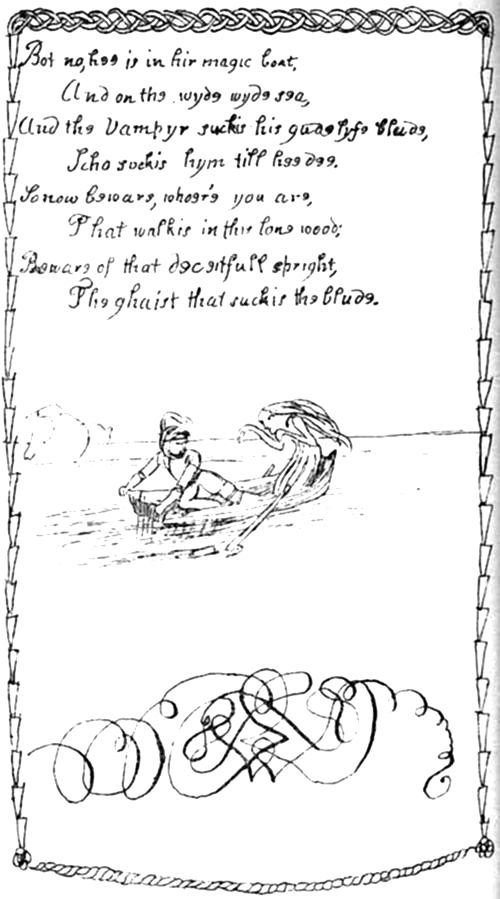 Bot no, hee is in hir magic boat,
And on the wyde wyde sea,
And the Vampyr suckis his gude lyfe blude,
Scho suckis hym till hee dee.
So now beware, whoe're you are,
That walkis in this lone wood;
Beware of that deceitfull spright,
The ghaist that suckis the blude.